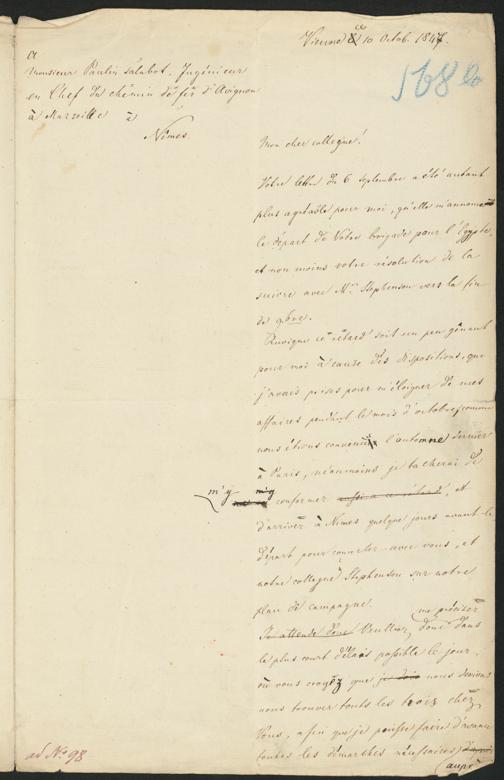 Vienne le 10 Octob. 1847.
168 b
A
Monsieur Paulin Talabot, Ingénieur
en Chef du chémin de fér d'Avignon
à Marseille à
Nîmes.
Mon cher collegue!
Votre lettre du 6 Septembre a été autant
plus agréable pour moi, qu'elle m'annonce
le départ de Votre brigade pour l'Egypte,
et non moins votre résolution de la
suivre avec Mr. Stephenson vers la fin
de 9bre.
Quoique ce rétard soit un peu gênant
pour moi à cause dés dispositions, que
j'avais prises pour m'éloigner de mes
affaires pendant le mois d'octobre, comme
nous étions convenus l'automne dernier
à Paris, néanmoins je tacherai de
m'y m'y conformer, et
d'arriver à Nîmes quelque jours avant le
départ pour concerter avec vous, et
notre collegue Stephenson sur notre
plan de campagne.
me préciser
Je attends donc Veuillez donc dans
le plus court délais possible le jour,
où vous croyez que je dois nous devions
nous trouver touts les trois chez
Vous, afin que je puisse faire d'avance
toutes les démarches nécessaires
(auprès
ad No. 98